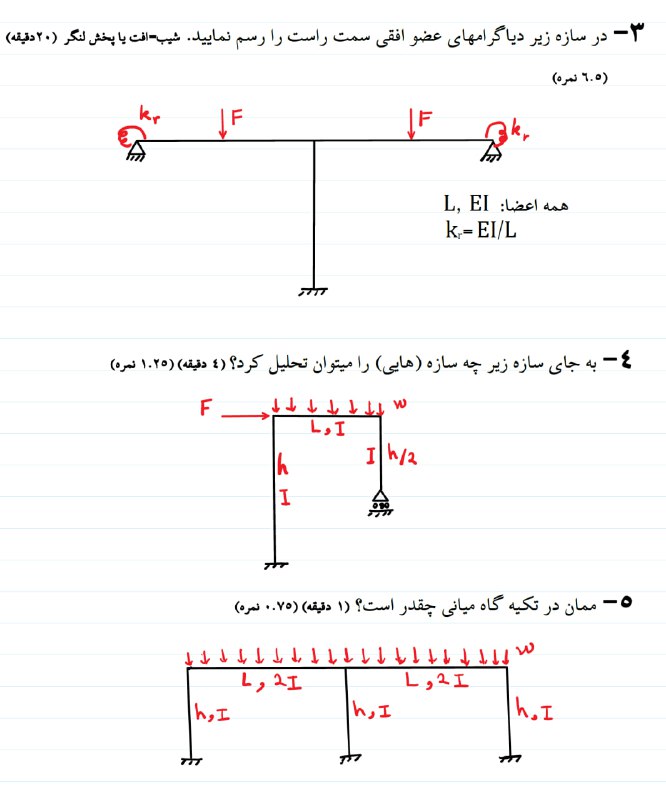 ۳- در سازه زیر دیاگرامهای عضو افقی سمت راست را رسم نمایید. شیب-افت یا پخش لنگر (۲۰دقیقه)
(۶.۵ نمره)
kr F F kr
همه اعضا: L, EI
kr= EI/L
۴- به جای سازه زیر چه سازه (هایی) را میتوان تحلیل کرد؟ (۴ دقیقه) (۱.۲۵ نمره)
F w
L, I
h I h/2
I
۵- ممان در تکیه گاه میانی چقدر است؟ (۱ دقیقه) (۰.۷۵ نمره)
w
L, 2I L, 2I
h, I h, I h, I